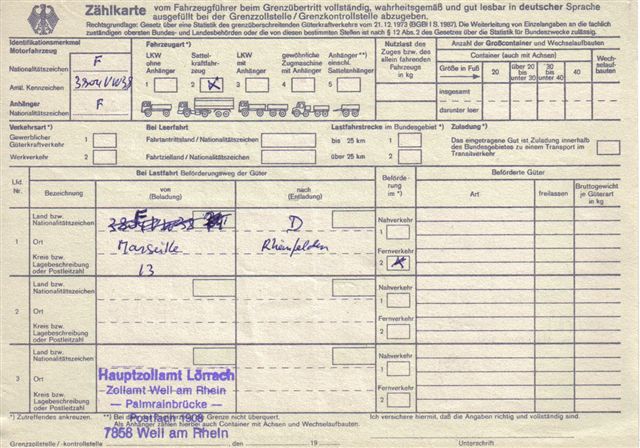 Zählkarte vom Fahrzeugführer beim Grenzübertritt vollständig, wahrheitsgemäß und gut lesbar in deutscher Sprache
ausgefüllt bei der Grenzzollstelle / Grenzkontrollstelle abzugeben.
Rechtsgrundlage: Gesetz über eine Statistik des grenzüberschreitenden Güterkraftverkehrs vom 21. 12. 1973 (BGBl I S. 1987). Die Weiterleitung von Einzelangaben an die fachlich
zuständigen obersten Bundes- und Landesbehörden oder die von diesen bestimmten Stellen ist nach § 12 Abs. 2 des Gesetzes über die Statistik für Bundeszwecke zulässig.
Identifikationsmerkmal
Motorfahrzeug
Nationalitätszeichen F
Amtl. Kennzeichen
Anhänger
Nationalitätszeichen F
Fahrzeugart *)
LKW ohne Anhänger 1
Sattelkraftfahrzeug 2 x
LKW mit Anhänger 3
gewöhnliche Zugmaschine mit Anhänger 4
Anhänger **) einschl. Sattelanhänger 5
Nutzlast des Zuges bzw. des allein fahrenden Fahrzeugs in kg
Anzahl der Großcontainer und Wechselaufbauten
Container (auch mit Achsen)
Größe in Fuß 20 über 20 bis unter 30 30 bis unter 40 40
Wechselaufbauten
insgesamt
darunter leer
Verkehrsart *)
Gewerblicher Güterkraftverkehr 1
Werkverkehr 2
Bei Leerfahrt
Fahrtantrittsland / Nationalitätszeichen
Fahrtzielland / Nationalitätszeichen
Lastfahrtstrecke im Bundesgebiet *)
bis 25 km 1
über 25 km 2
Zuladung *)
Das eingetragene Gut ist Zuladung innerhalb
des Bundesgebietes zu einem Transport im
Transitverkehr
Lfd. Nr.
Bei Lastfahrt Beförderungsweg der Güter
Bezeichnung
von (Beladung)
nach (Entladung)
Beförderung im *)
Beförderte Güter
Art
freilassen
Bruttogewicht je Güterart in kg
1
Land bzw. Nationalitätszeichen F D
Ort Marseille Rheinfelden
Kreis bzw. Lagebeschreibung oder Postleitzahl 13
Nahverkehr 1
Fernverkehr 2 x
2
Land bzw. Nationalitätszeichen
Ort
Kreis bzw. Lagebeschreibung oder Postleitzahl
Nahverkehr 1
Fernverkehr 2
3
Land bzw. Nationalitätszeichen
Ort
Kreis bzw. Lagebeschreibung oder Postleitzahl
Nahverkehr 1
Fernverkehr 2
Hauptzollamt Lörrach
– Zollamt Weil am Rhein
– Palmrainbrücke –
Postfach 1908
7858 Weil am Rhein
*) Zutreffendes ankreuzen.
Grenze nicht überquert.
Als Anhänger zählen hierbei auch Container mit Achsen und Wechselaufbauten.
Ich versichere hiermit, daß die Angaben richtig und vollständig sind.
Grenzzollstelle / -kontrollstelle , den 19
Unterschrift